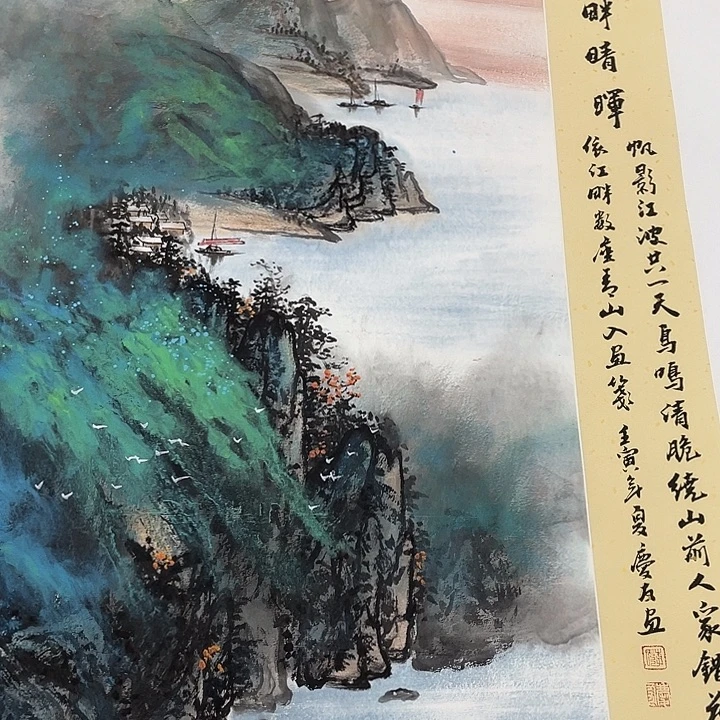 畔晴暉
帆影江波共一天鳥鳴清脆繞山前人家錯
依江畔数座青山入画箋 壬寅年夏慶友画